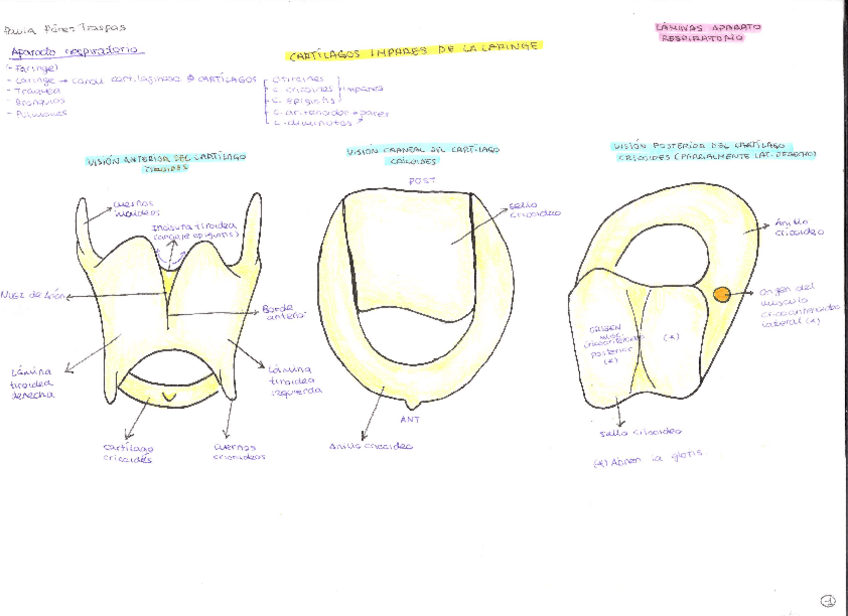 Paula Pérez Traspas
LÁMINAS APARATO
RESPIRATORIO
Aparato respiratorio
CARTÍLAGOS IMPARES DE LA LARINGE
- Faringe
- Laringe → canal cartilaginoso CARTÍLAGOS
- Tráquea
- Bronquios
- Pulmones
C. tiroides
C. cricoides
C. epiglotis
impares
C. aritenoides → pares
VISIÓN ANTERIOR DEL CARTÍLAGO
TIROIDES
VISIÓN CRANEAL DEL CARTÍLAGO
CRICOIDES
VISIÓN POSTERIOR DEL CARTÍLAGO
CRICOIDES (PARCIALMENTE LAT. DERECHO)
cuernos
hioideos
Incisura tiroidea
Nuez de Adán
Borde
anterior
Lámina
tiroidea
derecha
Lámina
tiroidea
izquierda
cartílago
cricoides
cuernos
cricoideos
POST
sello
cricoideo
ANT
Anillo cricoideo
Anillo
cricoideo
Origen del
músculo
cricoaritenoideo
lateral (*)
ORIGEN
posterior
(*)
(*)
sello cricoideo
(*) Abren la glotis.
1